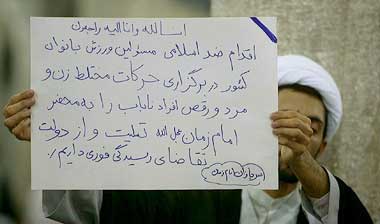 انا لله وانا الیه راجعون
اقدام ضد اسلامی مسئولین ورزش بانوان
کشور در برگزاری حرکات مختلط زن و
مرد و رقص افراد ناباب را به محضر
امام زمان عجل الله تسلیت و از دولت
تقاضای رسیدگی فوری داریم
سربازان امام زمان